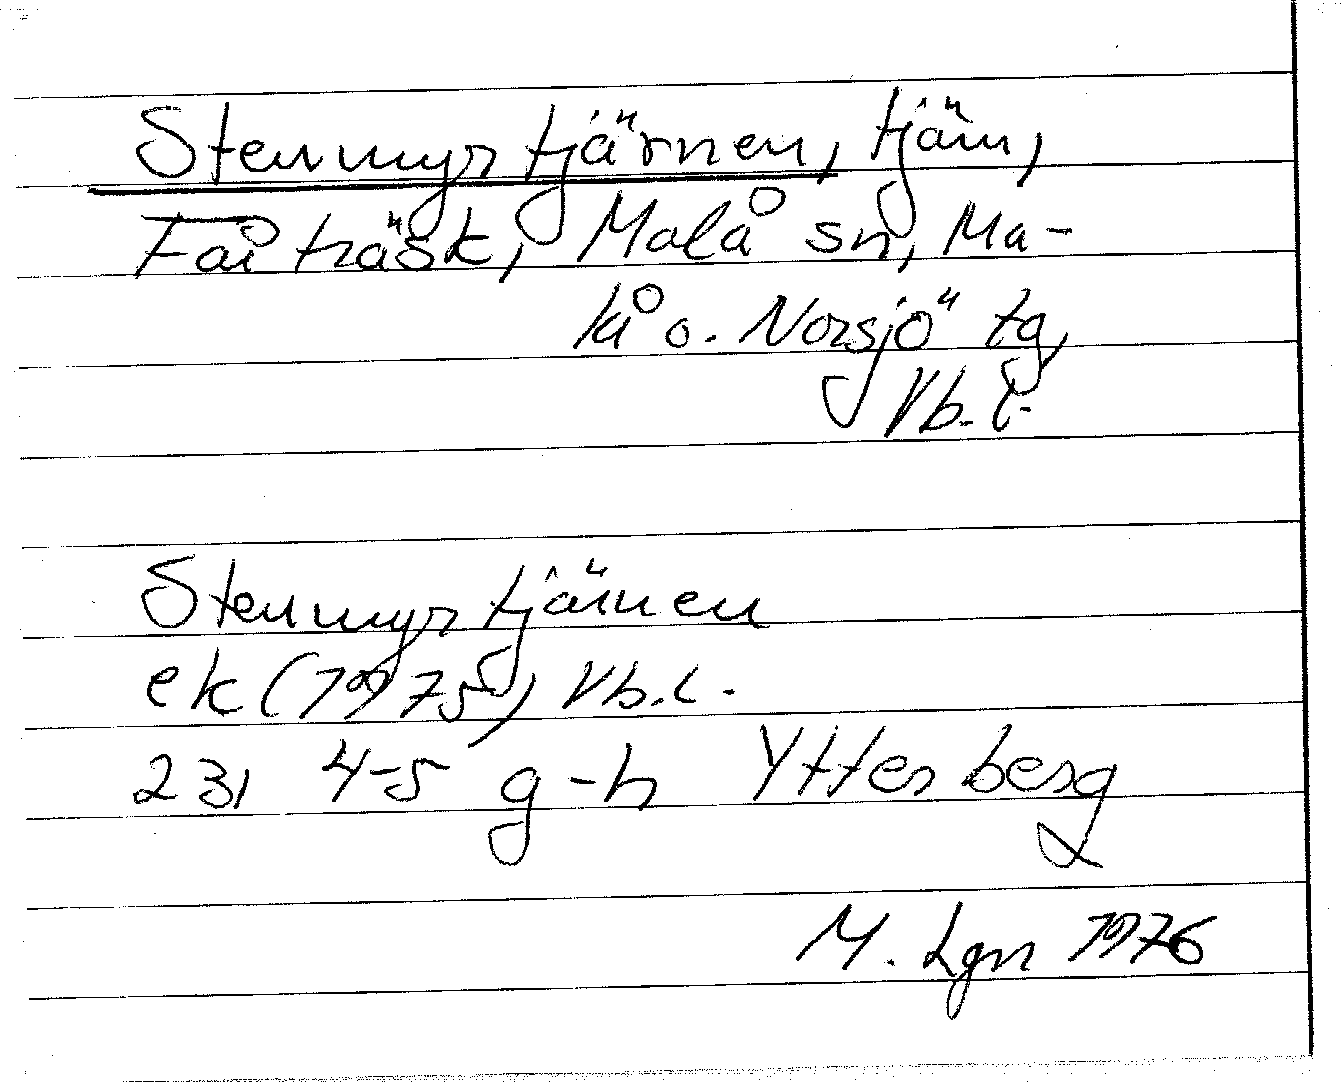 Stenmyrtjärnen, tjärn,
Fårträsk, Malå sn, Ma-
lå o. Norsjö tg,
Vb. l.
Stenmyrtjärnen
ek (1975) Vb. l.
231 4-5 g-h Ytterberg
M. Lgn 1976